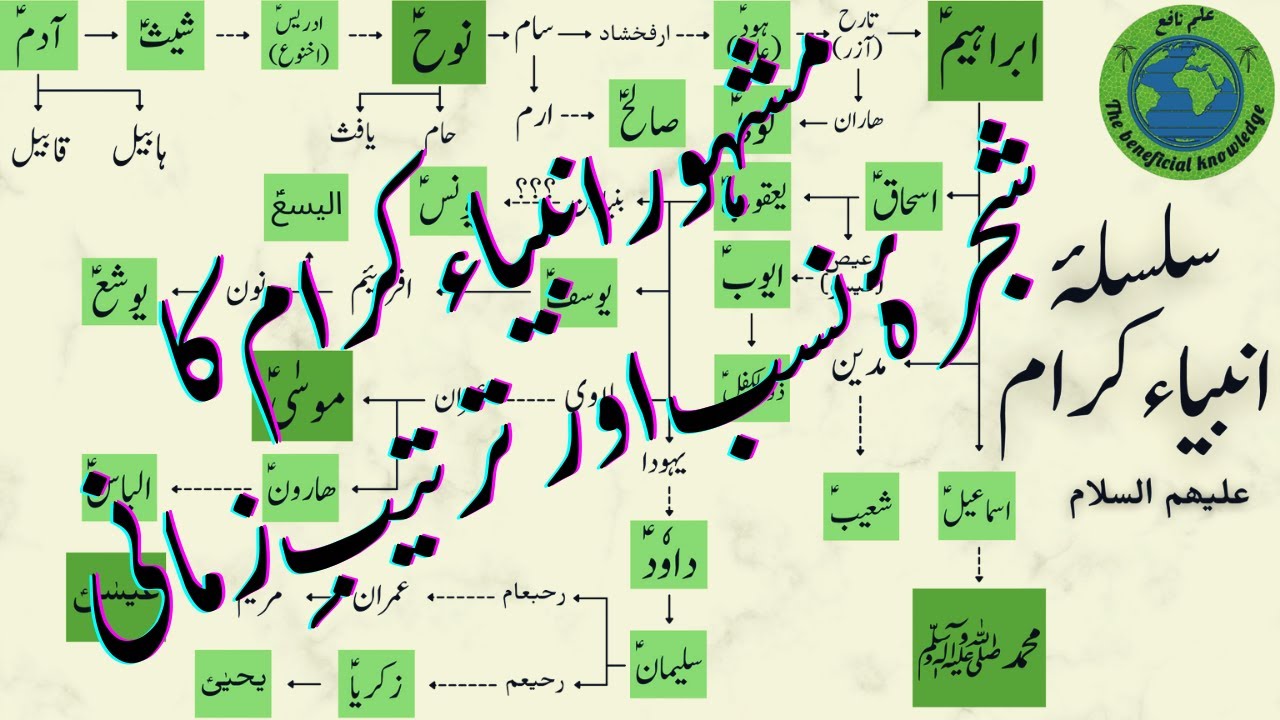 آدمؑ
شیثؑ
ادریسؑ
(اخنوع)
نوحؑ
سام
ارفخشاد
ہودؑ
تارح
(آزر)
ابراہیمؑ
علم نافع
The beneficial knowledge
قابیل
ہابیل
یافث
حام
ارم
صالحؑ
ھاران
الیسعؑ
یونسؑ
؟؟؟
یعقوبؑ
اسحاقؑ
یوشعؑ
نون
افرہیم
یوسفؑ
ایوبؑ
عیص
مدین
موسٰیؑ
لاوی
ذوالکفلؑ
الیاسؑ
ھارونؑ
یہودا
شعیبؑ
اسماعیلؑ
داؤدؑ
عیسٰی
مریم
عمران
رحبعام
یحییٰ
زکریاؑ
رحیعم
سلیمانؑ
محمد صلی اللہ علیہ وآلہ وسلم
سلسلۂ
انبیاء کرام
علیهم السلام
مشہور انبیاء کرام کا
شجرہ نسب اور ترتیبِ زمانی